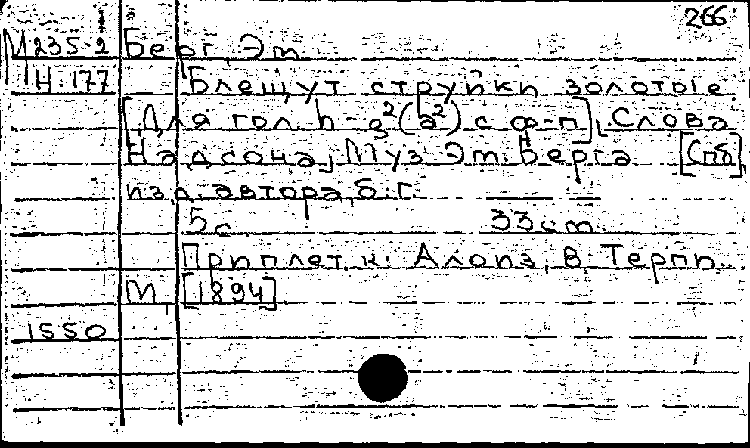 266
М 235-2 Берг, Эт.
Н-177 Блещут струйки золотые
[Для гол. h-g²(a²) с ф-п], Слова
Надсона, Муз Эт. Берга [Спб]
изд. автора, б. г.
5 с 33 см.
Приплет. к: Алоиз, В. Терпи.
М, [1894]
1550